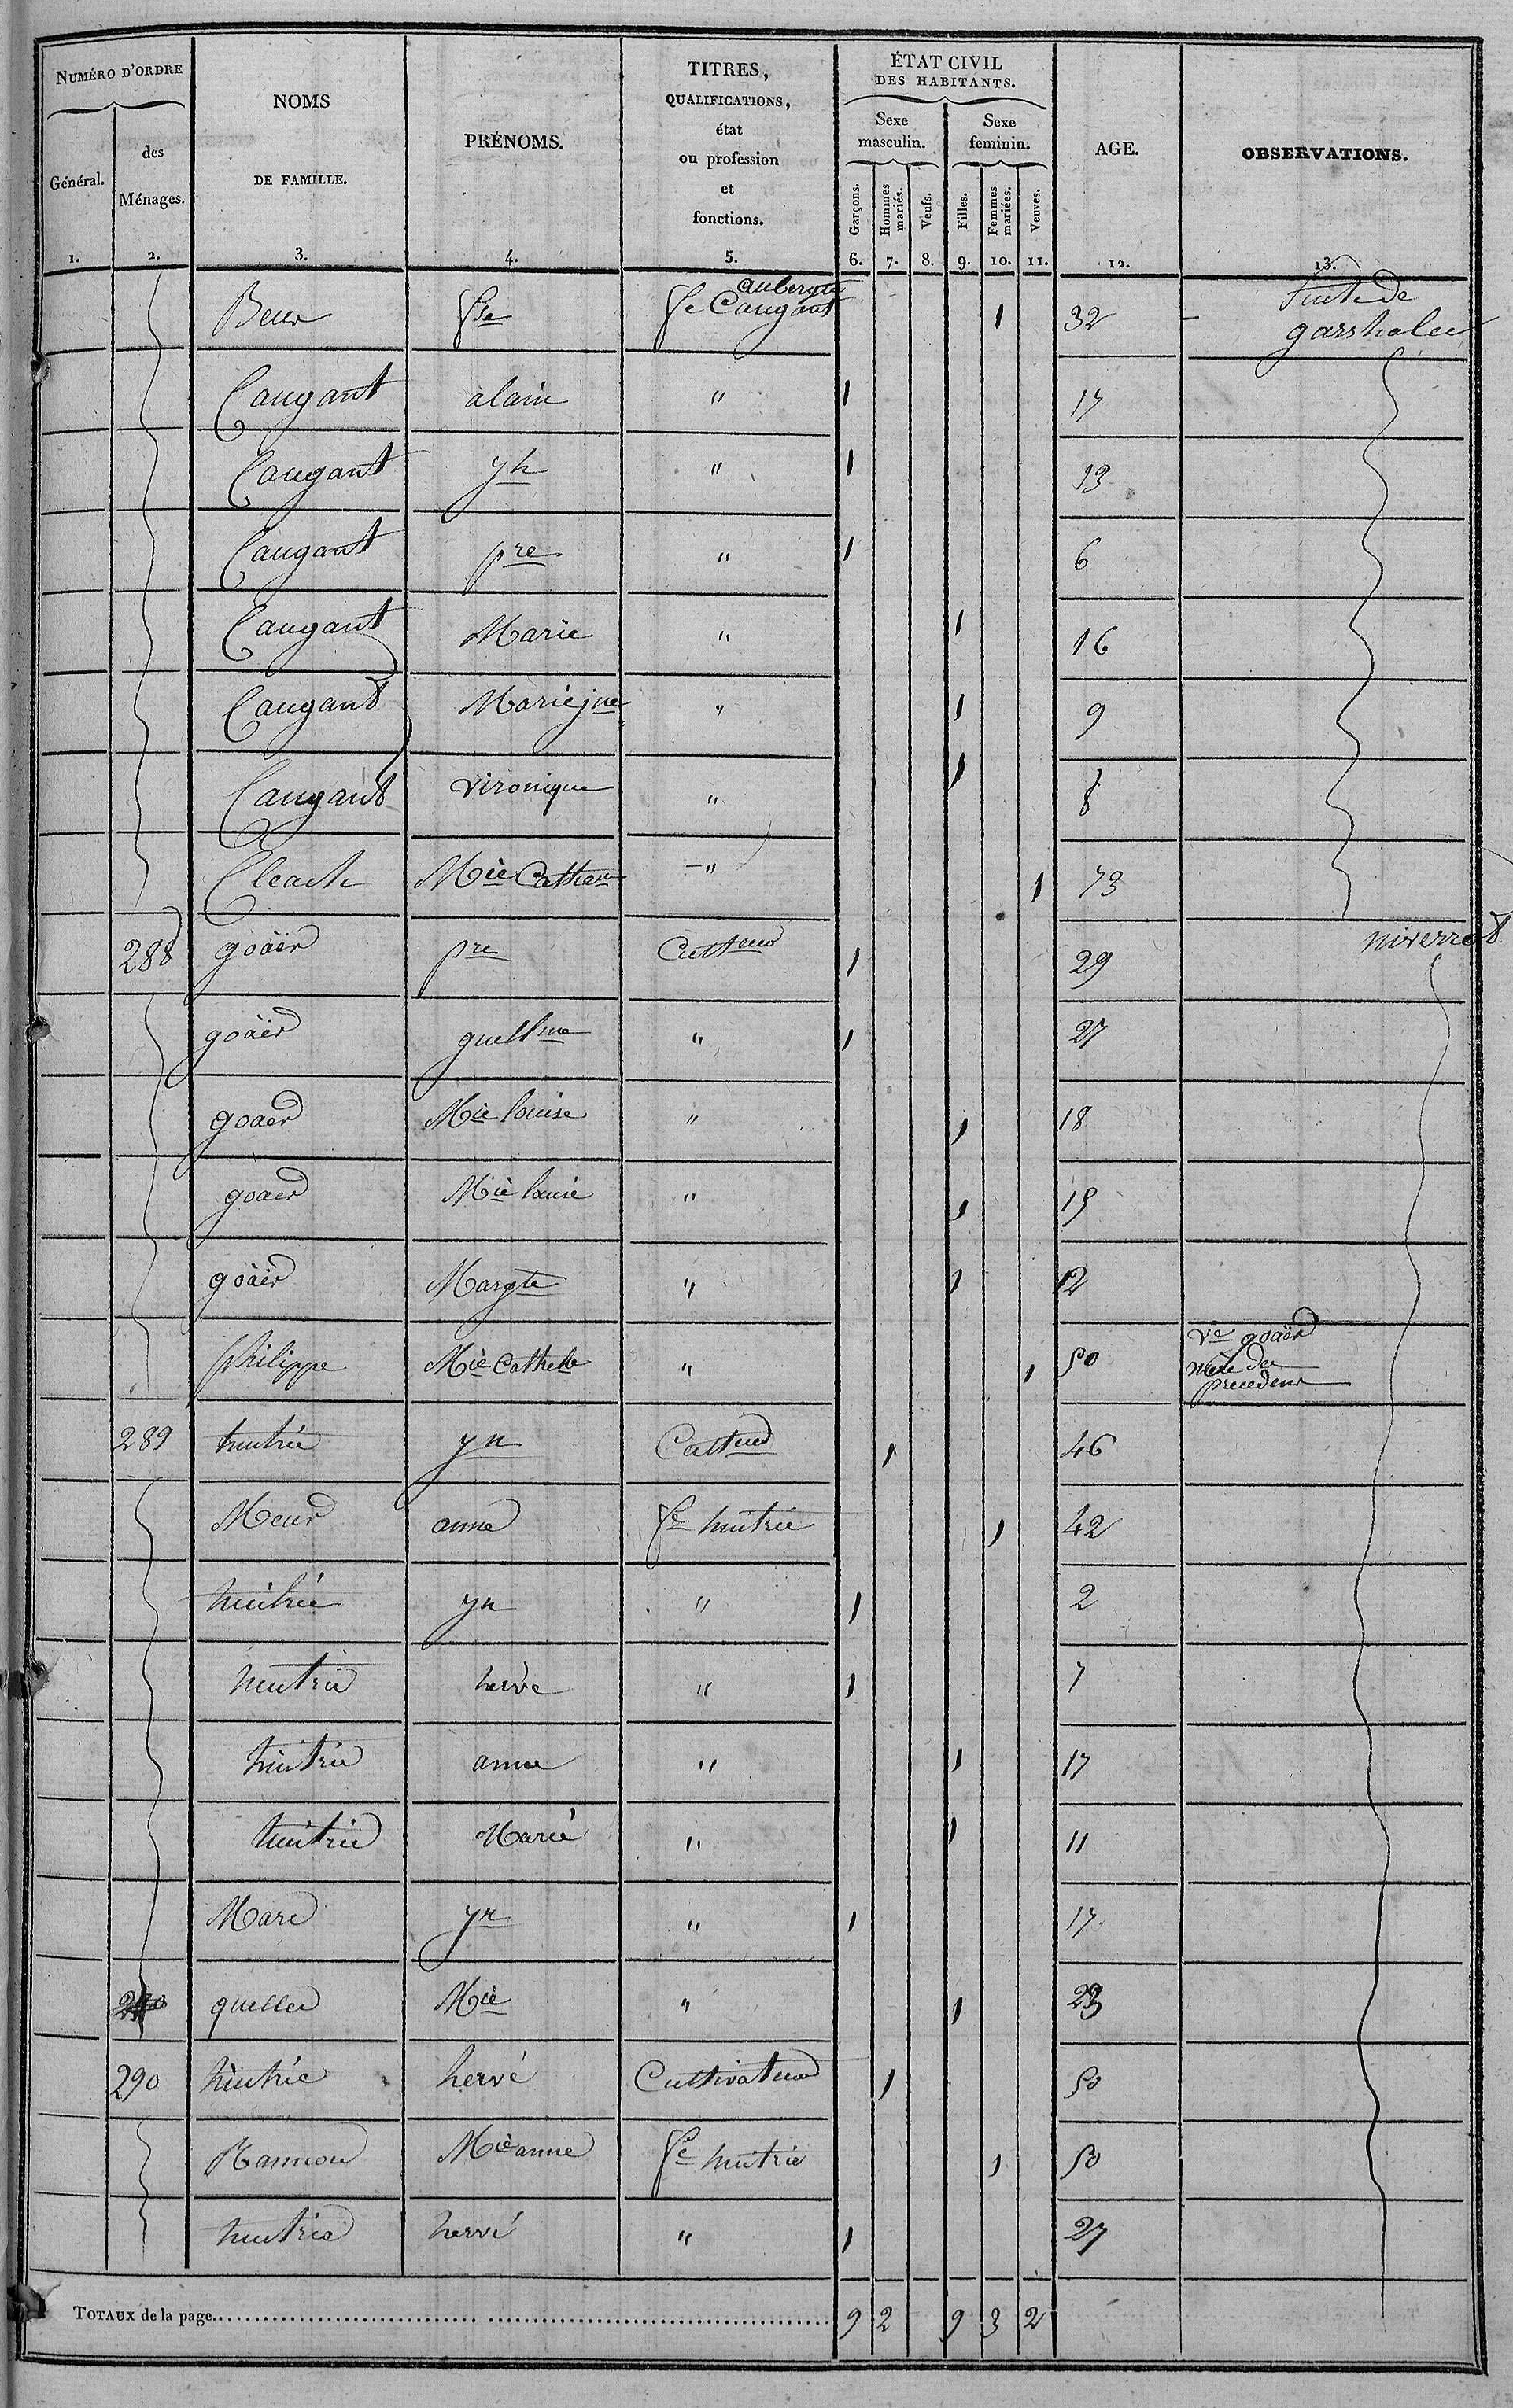 NUMÉRO D'ORDRE
Général.
des Ménages.
NOMS
DE FAMILLE.
PRÉNOMS.
TITRES,
QUALIFICATIONS,
état
ou profession
et
fonctions.
ÉTAT CIVIL
DES HABITANTS.
Sexe masculin.
Sexe feminin.
Garçons.
Hommes mariés.
Veufs.
Filles.
Femmes mariées.
Veuves.
AGE.
OBSERVATIONS.
1. 2. 3. 4. 5. 6. 7. 8. 9. 10. 11. 12. 13.
Beur fse fe Caugant 1 32 Suite de
Caugant alain " 1 17
Caugant yh " 1 13
Caugant pre " 1 6
Caugant Marie " 1 16
Caugant Marie jne " 1 9
Caugant vironique " 1 8
Cleach Mie " 1 73
288 goäer pre Culteur 1 29
goäer guellme " 1 27
goaer Mie louise " 1 18
goaer Mie louise " 1 15
goäer Margte " 1 12
philippe Mie " 1 50 Ve goäer
mère des
precedens
289 yn Culteur 1 46
Meur anne fe 1 42
yn " 1 2
herve " 1 7
anne " 1 17
Marie " 1 11
Marc yn " 1 17
quellec Mie " 1 23
290 hervé Cultivateur 1 50
Rannou Mie anne fe 1 50
hervé " 1 27
TOTAUX de la page. 9 2 9 3 2